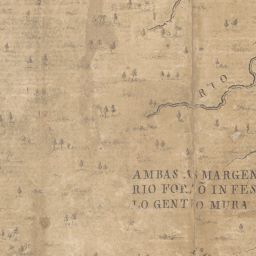 RIO
AMBAS AS MARGEN
RIO FORÃO INFES
LO GENTIO MURA